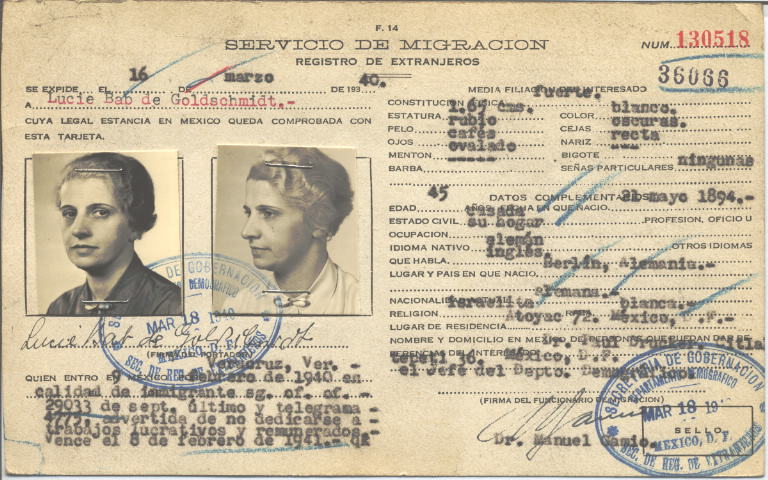 F. 14
SERVICIO DE MIGRACION
REGISTRO DE EXTRANJEROS
NUM. 130518
36066
SE EXPIDE EL 16 DE marzo DE 193 40.
A Lucie Bab de Goldschmidt.-
CUYA LEGAL ESTANCIA EN MEXICO QUEDA COMPROBADA CON
ESTA TARJETA.
Lucie Bab de Goldschmidt
(FIRMA DEL PORTADOR)
Veracruz, Ver.-
QUIEN ENTRO A MEXICO 9 de febrero de 1940 en
calidad de inmigrante sg. of. of.-
29033 de sept. último y telegrama
advertida de no dedicarse a
trabajos lucrativos y remunerados.
Vence el 8 de febrero de 1941.-
MEDIA FILIACION DEL INTERESADO
CONSTITUCION FISICA fuerte.
ESTATURA 1.65 cms. COLOR blanco.
PELO rubio CEJAS oscuras.
OJOS cafés NARIZ recta
MENTON ovalado BIGOTE ---
BARBA ----- SEÑAS PARTICULARES ningunas
DATOS COMPLEMENTARIOS
EDAD 45 AÑOS. FECHA EN QUE NACIO. 21 mayo 1894.-
ESTADO CIVIL casada PROFESION, OFICIO U
OCUPACION su hogar
IDIOMA NATIVO alemán OTROS IDIOMAS
QUE HABLA. inglés.
LUGAR Y PAIS EN QUE NACIO. Berlín, Alemania.-
NACIONALIDAD ACTUAL alemana.-
RELIGION israelita RAZA blanca.-
LUGAR DE RESIDENCIA Atoyac 72. México, D.F.-
NOMBRE Y DOMICILIO EN MEXICO DE PERSONAS QUE PUEDAN DAR RE-
FERENCIA DEL INTERESADO Dr.
México, D.F.
el Jefe del Depto. Demográfico
(FIRMA DEL FUNCIONARIO DE MIGRACION)
Dr. Manuel Gamio.
SELLO
SECRETARIA DE GOBERNACION
DEPARTAMENTO DEMOGRAFICO
MAR 18 1940
MEXICO, D. F.
SEC. DE REG. DE EXTRANJEROS
SECRETARIA DE GOBERNACION
DEPARTAMENTO DEMOGRAFICO
MAR 18 19
MEXICO, D. F.
SEC. DE REG. DE EXTRANJEROS